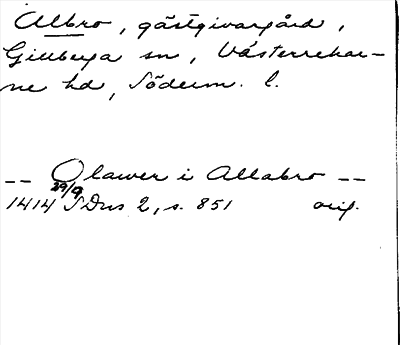 Albro, gästgivargård,
Gillberga sn, Västerrekar-
ne hd, Söderm. l.
-- Olawer i Allabro --
1414 29/9 SDns 2, s. 851 orig.